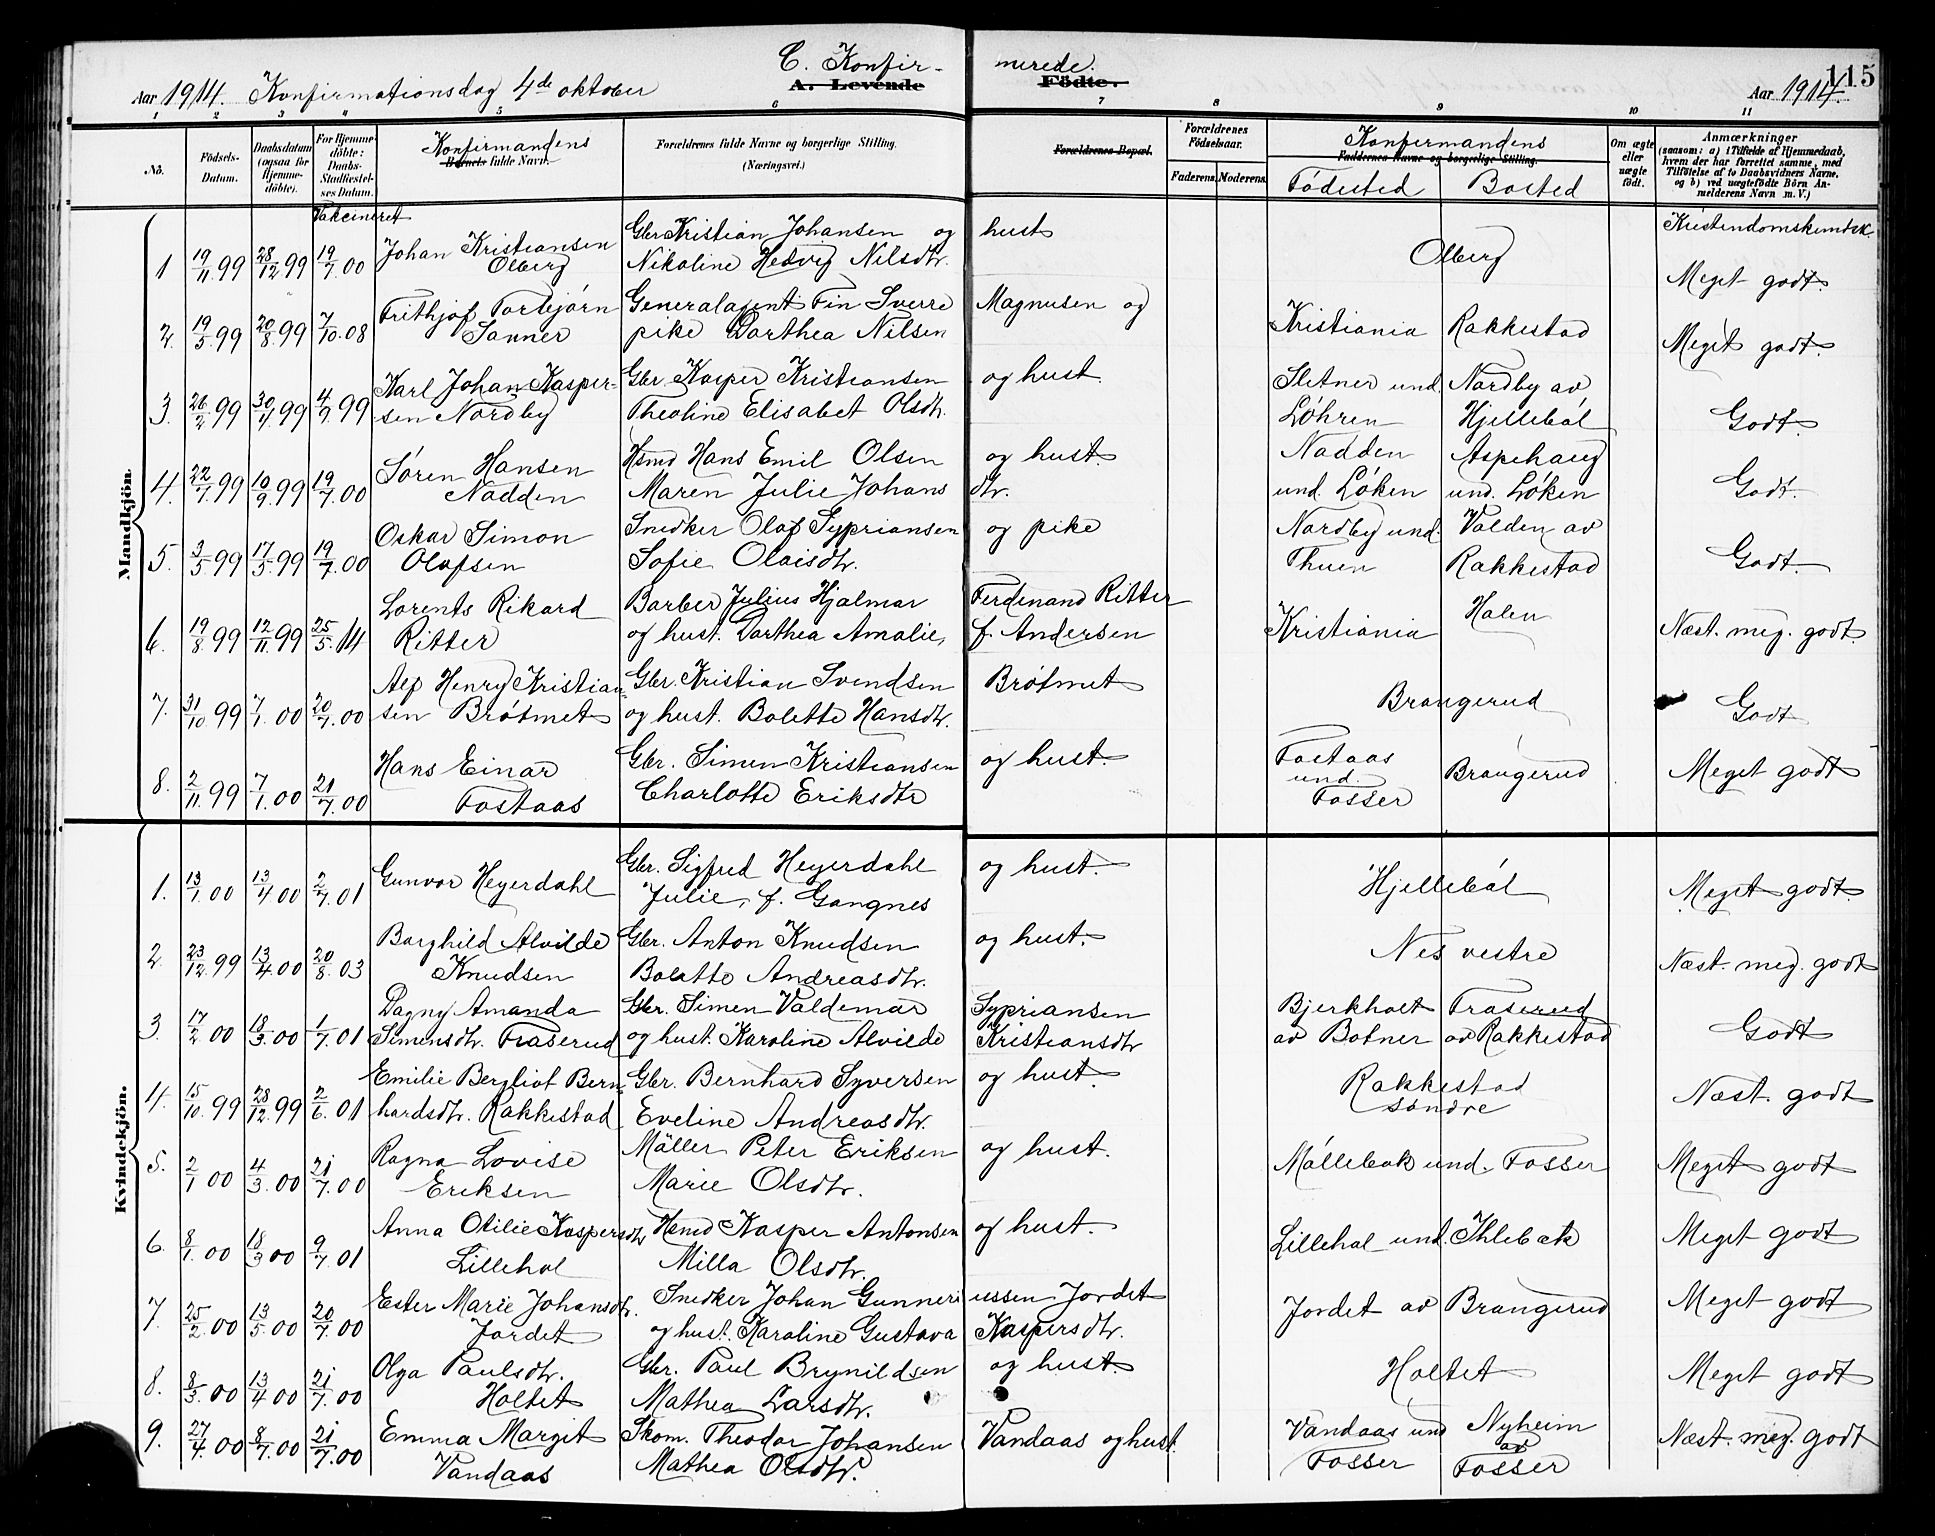 115
C. Konfirmerede.
Aar 1914. Konfirmationsdag 4de oktober A. Levende Födte. Aar 1914.
1 2 3 4 5 6 7 8 9 10 11
No. Födsels-Datum. Daabsdatum (ogsaa for Hjemmedöbte). For Hjemmedöbte: Daabs-Stadfæstelses Datum. Konfirmandens Barnets fulde Navn. Forældrenes fulde Navne og borgerlige Stilling. (Næringsvei.) Forældrenes Bopæl. Forældrenes Födselsaar. Faderens. Moderens. Konfirmandens Faddernes Navne og borgerlige Stilling. Födested Bosted Om ægte eller uægte födt. Anmærkninger (saasom: a) i Tilfælde af Hjemmedaab, hvem der har forrettet samme, med Tilföielse af to Daabsvidners Navne, og b) ved uægtefödte Börn Anmelderens Navn m. V.)
Vakcineret Kristendomskundsk.
Mandkjön.
1 19/11 99 28/12 99 19/7.00 Johan Kristiansen Olberg Gbr. Kristian Johansen og hust Nikoline Hedvig Nilsdtr. Olberg Meget godt.
2. 19/5 99 20/8 99 7/10.08 Frithjof Torbjörn Sanner Generalagent Fin Sverre Magnusen og pike Dorthea Nilsen Kristiania Rakkestad Meget godt.
3. 26/2 99 30/4 99 4/7 99 Karl Johan Kaspersen Nordby Gbr. Kasper Kristiansen og hust. Theoline Elisabet Olsdtr. Sletner und. Löhren Nordby av Hjelleböl Godt.
4. 22/7 99 10/9 99 19/7.00 Sören Hansen Nadden Hsmd Hans Emil Olsen og hust. Maren Julie Johansdtr. Nadden und. Löken Aspehaug und. Löken Godt.
5. 3/5 99 17/5 99 19/7.00 Oskar Simon Olafsen Snedker Olaf Sypriansen og pike Sofie Olaisdtr. Nordby und. Thuen Valden av Rakkestad Godt.
6. 19/8 99 12/11 99 25/5.14 Lorents Rikard Ritter Barber Julius Hjalmar Ferdinand Ritter og hust. Dorthea Amalie, f. Andersen Kristiania Halen Næst. meg. godt.
7. 31/10 99 7/1.00 20/7.00 Alf Henry Kristiansen Brötmet Gbr. Kristian Svendsen Brötmet og hust. Bolette Hansdtr. Brangerud Godt
8. 2/11 99 7/1.00 21/7.00 Hans Einar Fostaas Gbr. Simen Kristiansen og hust. Charlotte Eriksdtr Fostaas und. Fosser Brangerud Meget godt
Kvindekjön.
1. 13/1.00 13/4 00 2/7.01 Gunvor Heyerdahl Gbr. Sigfred Heyerdahl og hust. Julie, f. Gangnes Hjelleböl Meget godt.
2. 23/12.99 13/4 00 20/8.03 Borghild Alvilde Knudsen Gbr. Anton Knudsen og hust. Bolette Andreasdtr. Nes vestre Næst. meg. godt
3. 17/2 00 18/3.00 1/7.01 Dagny Amanda Simensdtr. Fraserud Gbr. Simen Valdemar Sypriansen og hust. Karoline Alvilde Kristiansdtr Bjerkholt av Botner Fraserud av Rakkestad Godt
4. 15/10.99 28/12.99 2/6.01 Emilie Bergliot Bernhardsdtr. Rakkestad Gbr. Bernhard Syversen og hust. Eveline Andreasdtr. Rakkestad söndre Næst. godt
5. 2/1 00 4/3.00 21/7.00 Ragna Lovise Eriksen Möller Peter Eriksen og hust. Marie Olsdtr. Möllebæk und. Fosser Meget godt
6. 8/1.00 18/3 00 9/7 01 Anna Otilie Kaspersdtr Lillehol Hsmd Kasper Antonsen og hust. Milla Olsdtr. Lillehol und. Ihlebæk Meget godt
7. 25/2.00 13/5 00 20/7.00 Ester Marie Johansdtr. Jordet Snedker Johan Gunneriussen Jordet og hust. Karoline Gustava Kaspersdtr. Jordet av Brangerud Meget godt
8. 8/3.00 13/4 00 21/7.00 Olga Paulsdtr. Holtet Gbr. Paul Brynildsen og hust Mathea Larsdtr. Holtet Meget godt
9. 27/4.00 8/7.00 21/7.00 Emma Margit Vandaas Skom. Theodor Johansen Vandaas og hust. Mathea Olsdtr. Vandaas und Fosser Nyheim av Fosser Næst. meg. godt